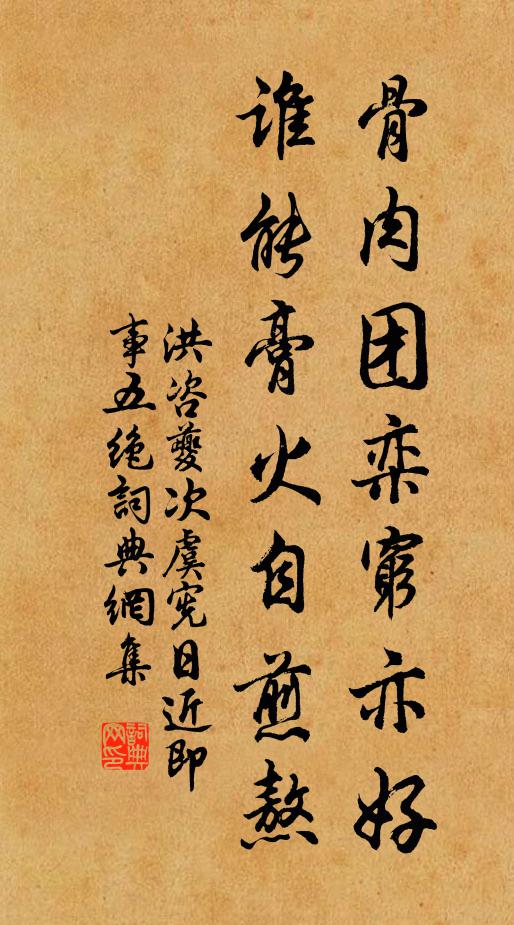 骨肉团栾穷亦好
谁能膏火自煎熬
洪咨夔次虞宪日近即
事五绝词典網集
詞典網印